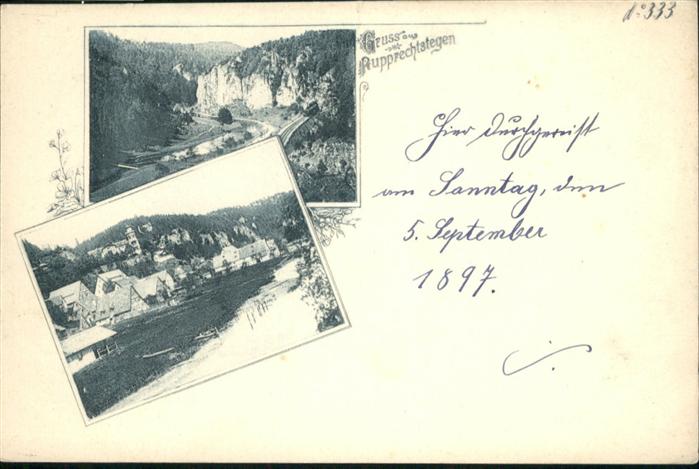 No 333
Gruss aus
Rupprechtstegen
Hier durchgereist
am Sonntag, den
5. September
1897.